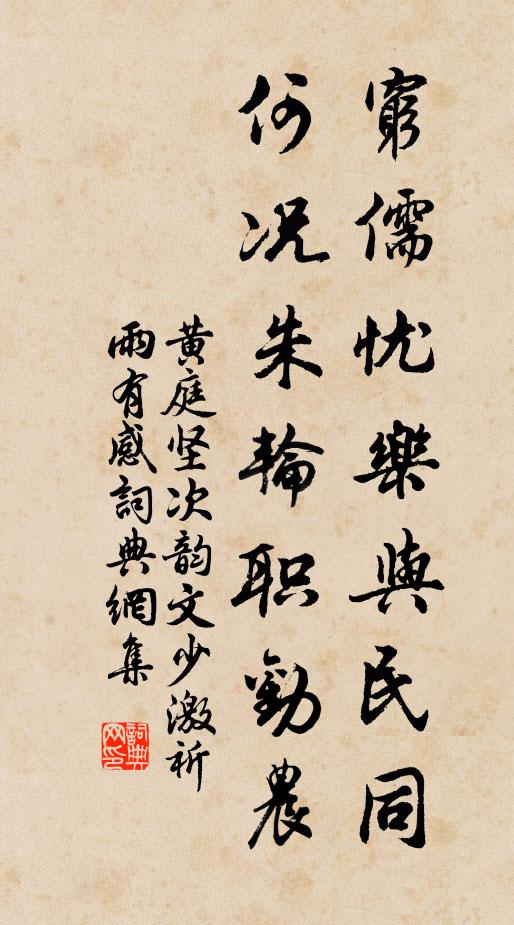 窮儒忧樂與民同
何况朱輪职勸農
黄庭坚次韵文少激祈
雨有感詞典網集
詞典网印